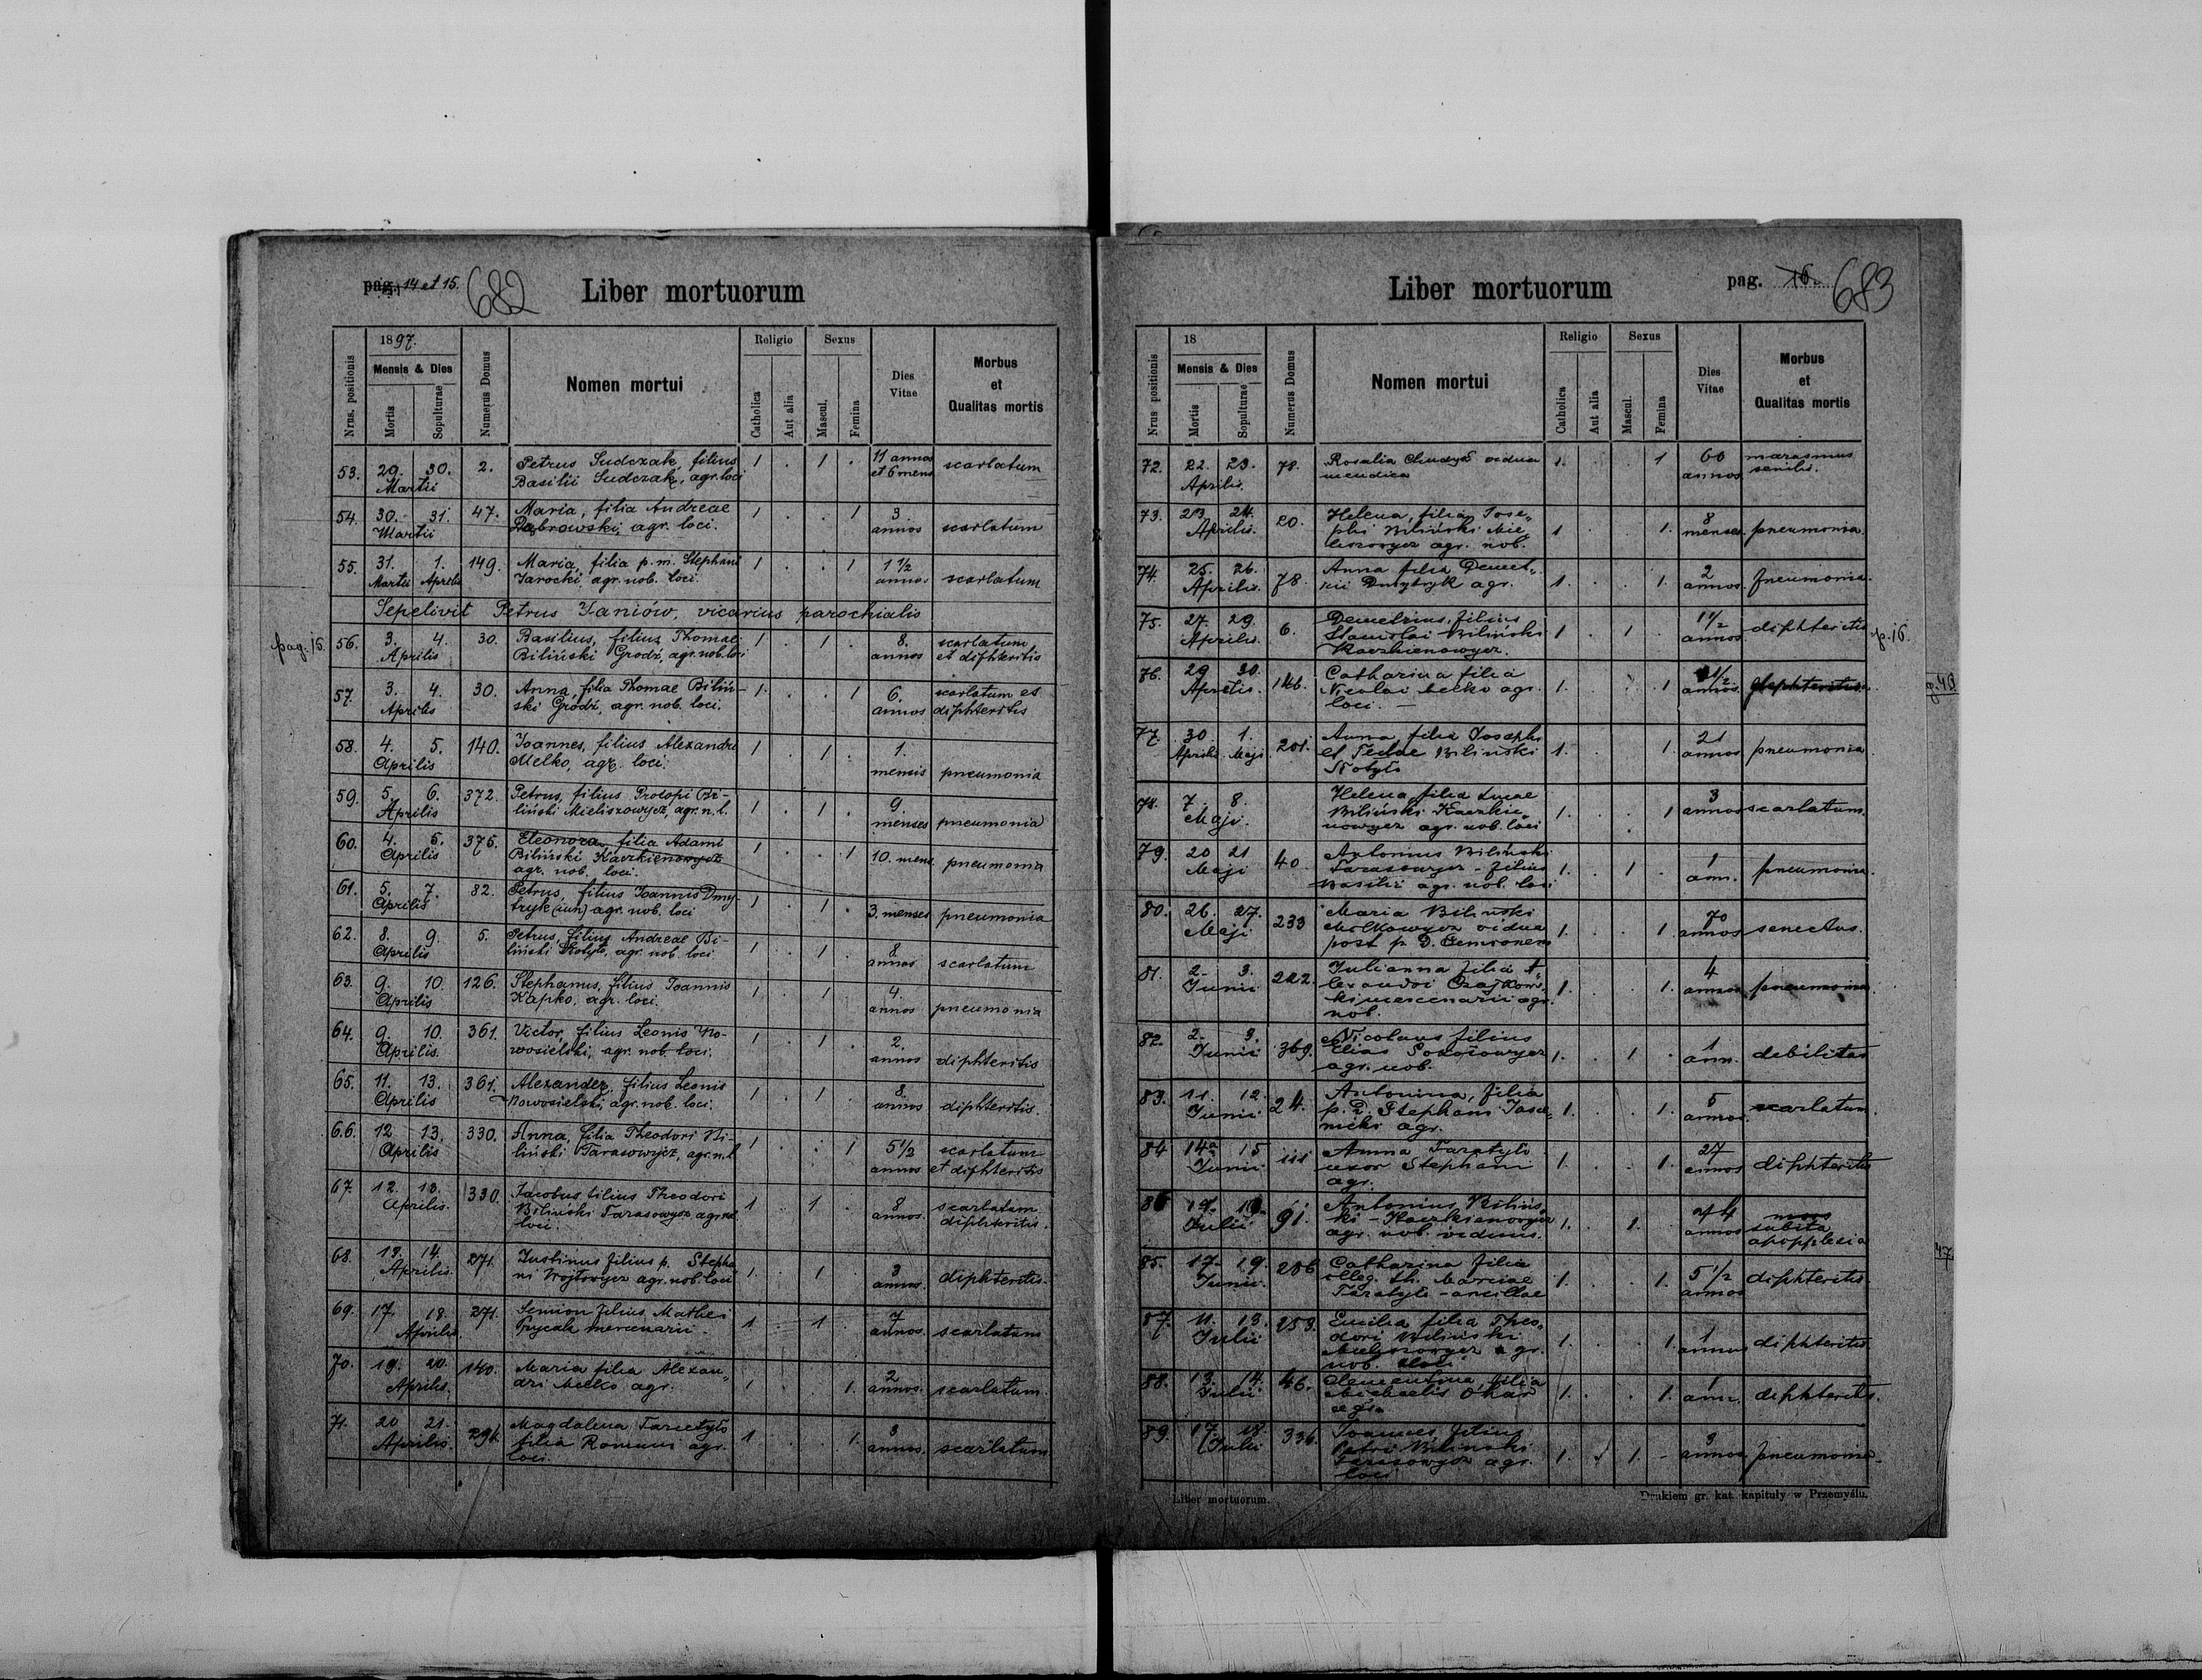 pag. 14 et 15. 682
Liber mortuorum
Nrus. positionis
1897.
Mensis & Dies
Mortis
Sepulturae
Numerus Domus
Nomen mortui
Religio
Catholica
Aut alia
Sexus
Mascul.
Femina
Dies Vitae
Morbus
et
Qualitas mortis
53. 29. 30. 2. Petrus Sudczak, filius 1 . 1 . 11 annos
Martii Basilii Sudczak, agr. loci et 6 mens scarlatum
54. 30. 31. 47. Maria, filia Andreae 1 . . 1 3
Martii Dąbrowski, agr. loci. annos scarlatum
55. 31. 1. 149. Maria, filia p. m. Stephani 1 . . 1 1 1/2
Martii Aprilis Jarocki, agr. nob. loci. annos scarlatum
Sepelivit Petrus Janiów, vicarius parochialis
pag. 15. 56. 3. 4. 30. Basilius, filius Thomae 1 . 1 . 8. scarlatum
Aprilis Biliński Grodź, agr. nob. loci annos et diphteritis
57. 3. 4. 30. Anna, filia Thomae Biliń- 1 . . 1 6 scarlatum et
Aprilis ski Grodź, agr. nob. loci. annos diphteritis
58. 4. 5. 140. Joannes, filius Alexandri 1 . 1 . 1.
Aprilis Melko, agr. loci. mensis pneumonia
59. 5. 6. 372. Petrus, filius Procopi Bi- 1 . 1 . 9
Aprilis liński Mieliszowycz, agr. n. l. menses pneumonia
60. 4. 6. 375. Eleonora, filia Adami 1 . . 1
Aprilis Biliński Kaczkienowycz 10. mens. pneumonia
agr. nob. loci.
61. 5. 7. 82. Petrus, filius Joannis Dmy-
Aprilis tryk (iun) agr. nob. loci 1 . 1 . 3. menses pneumonia
62. 8. 9. 5. Petrus, filius Andreae Bi- 1 . 1 . 8
Aprilis liński Kotyło, agr. nob. loci annos scarlatum
63. 9. 10. 126. Stephanus, filius Joannis 1 . 1 4.
Aprilis Kapko, agr. loci. annos pneumonia
64. 9. 10. 361. Victor, filius Leonis No- 1 . 1 . 2.
Aprilis. wosielski, agr. nob. loci. annos diphteritis
65. 11. 13. 361. Alexander, filius Leonis 1 . 1 8.
Aprilis Nowosielski, agr. nob. loci. annos diphteritis.
66. 12 13. 330. Anna, filia Theodori Bi- 1 . . 1 5 1/2 scarlatum
Aprilis liński Tarasowycz, agr. n. l. annos et diphteritis
67. 12. 13. 330. Jacobus filius Theodori 1 1 . 8 scarlatum
Aprilis. Biliński Tarasowycz agr. nob. annos. diphteritis.
loci.
68. 13. 14. 271. Justinus filius p. Stepha- 1. . 1 . 3
Aprilis. ni Wojtowycz agr. nob. loci annos. diphteritis.
69. 17. 18. 271. Semion filius Mathei 1 . 1 . 7
Aprilis. mercenarii. annos. scarlatum
70. 19. 20. 140. Maria filia Alexan- 1 . . 1. 2
Aprilis. dri Melko agr. annos. scarlatum.
71. 20 21. 296 Magdalena Taratyło 1 . . 1. 3
Aprilis. filia Romani agr. annos. scarlatum
loci.
Liber mortuorum
pag. 16. 683
Nrus positionis
18
Mensis & Dies
Mortis
Sepulturae
Numerus Domus
Nomen mortui
Religio
Catholica
Aut alia
Sexus
Mascul.
Femina
Dies Vitae
Morbus
et
Qualitas mortis
72. 22. 23. 78. Rosalia vidua 1. . . 1 60 marasmus
Aprilis. mendica annos senilis.
73. 23. 24. 20. Helena, filia Jose-
Aprilis. phi Biliński Mie- 1 . . 1. 8 menses. pneumonia.
liszowycz agr. nob.
74. 25. 26. 78. Anna filia Demet- 1. . . 1. 2
Aprilis. rii Dmytryk agr. annos. pneumonia.
75. 27. 29. 6. Demetrius, filius 1 1/2
Aprilis. Stanislai Biliński 1 . 1 . annos diphteritis p. 16.
Kaczkienowycz.
76. 29 30. 146. Catharina filia 1/2
Aprilis. Nicolai Melko agr. 1. . . 1 annos. diphteritis.
loci.
77. 30. 1. 201. Anna, filia Josephi 21
Aprilis. Maji et Teclae Biliński 1. . . 1. annos pneumonia.
Kotyło
78. 7. 8. Helena, filia Lucae 3
Maji. Biliński Kaczkie- 1. . . 1 annos scarlatum.
nowycz agr. nob. loci
79. 20 21 40. Antonius Biliński 1
Maji Tarasowycz - filius 1. . 1 . ann. pneumonia.
Basilii agr. nob. loci
80. 26. 27. 233 Maria Biliński 70
Maji Molkowycz vidua 1. . . 1. annos senectus.
post p. D. Semionem
81. 2. 3. 222. Julianna filia A- 4
Junii lexandri Czajkow- 1. . . 1. annos pneumonia.
ski mercenarii agr.
nob.
82. 2. 3. 369. Nicolaus filius 1
Junii Elias 1. . 1 . ann. debilitas
agr. nob.
83. 11. 12. 24. Antonina, filia 5
Junii p. D. Stephani Jase- 1. . . 1. annos. scarlatum.
nicki agr.
84 14 15 111 Anna Taratyło 27
Junii uxor Stephani 1. . . 1. annos diphteritis
agr.
86 17. 19. 91. Antonius Biliń- 74 mors
Julii ski - Kaczkienowycz 1. . 1. . annos subita
agr. nob. viduus. apopplexia
85. 17. 19. 256 Catharina filia
Junii. illeg. th. Mariae 1. . . 1. 5 1/2 diphteritis.
Taratyło - ancillae annos
87. 11. 13. 253. Emilia filia Theo-
Julii dori Biliński 1. . . 1. 1 annus diphteritis
Mieliszowycz agr.
nob. loci.
88. 13. 14. 46. Clementina filia 1
Julii Michaelis agr. 1. . . 1. ann. diphteritis.
89. 17. 18. 336. Joannes, filius 3
Julii Petri Biliński 1. . 1. - annos pneumonia.
Tarasowycz agr.
loci
47
Liber mortuorum.
Drukiem gr. kat. kapituły w Przemyślu.